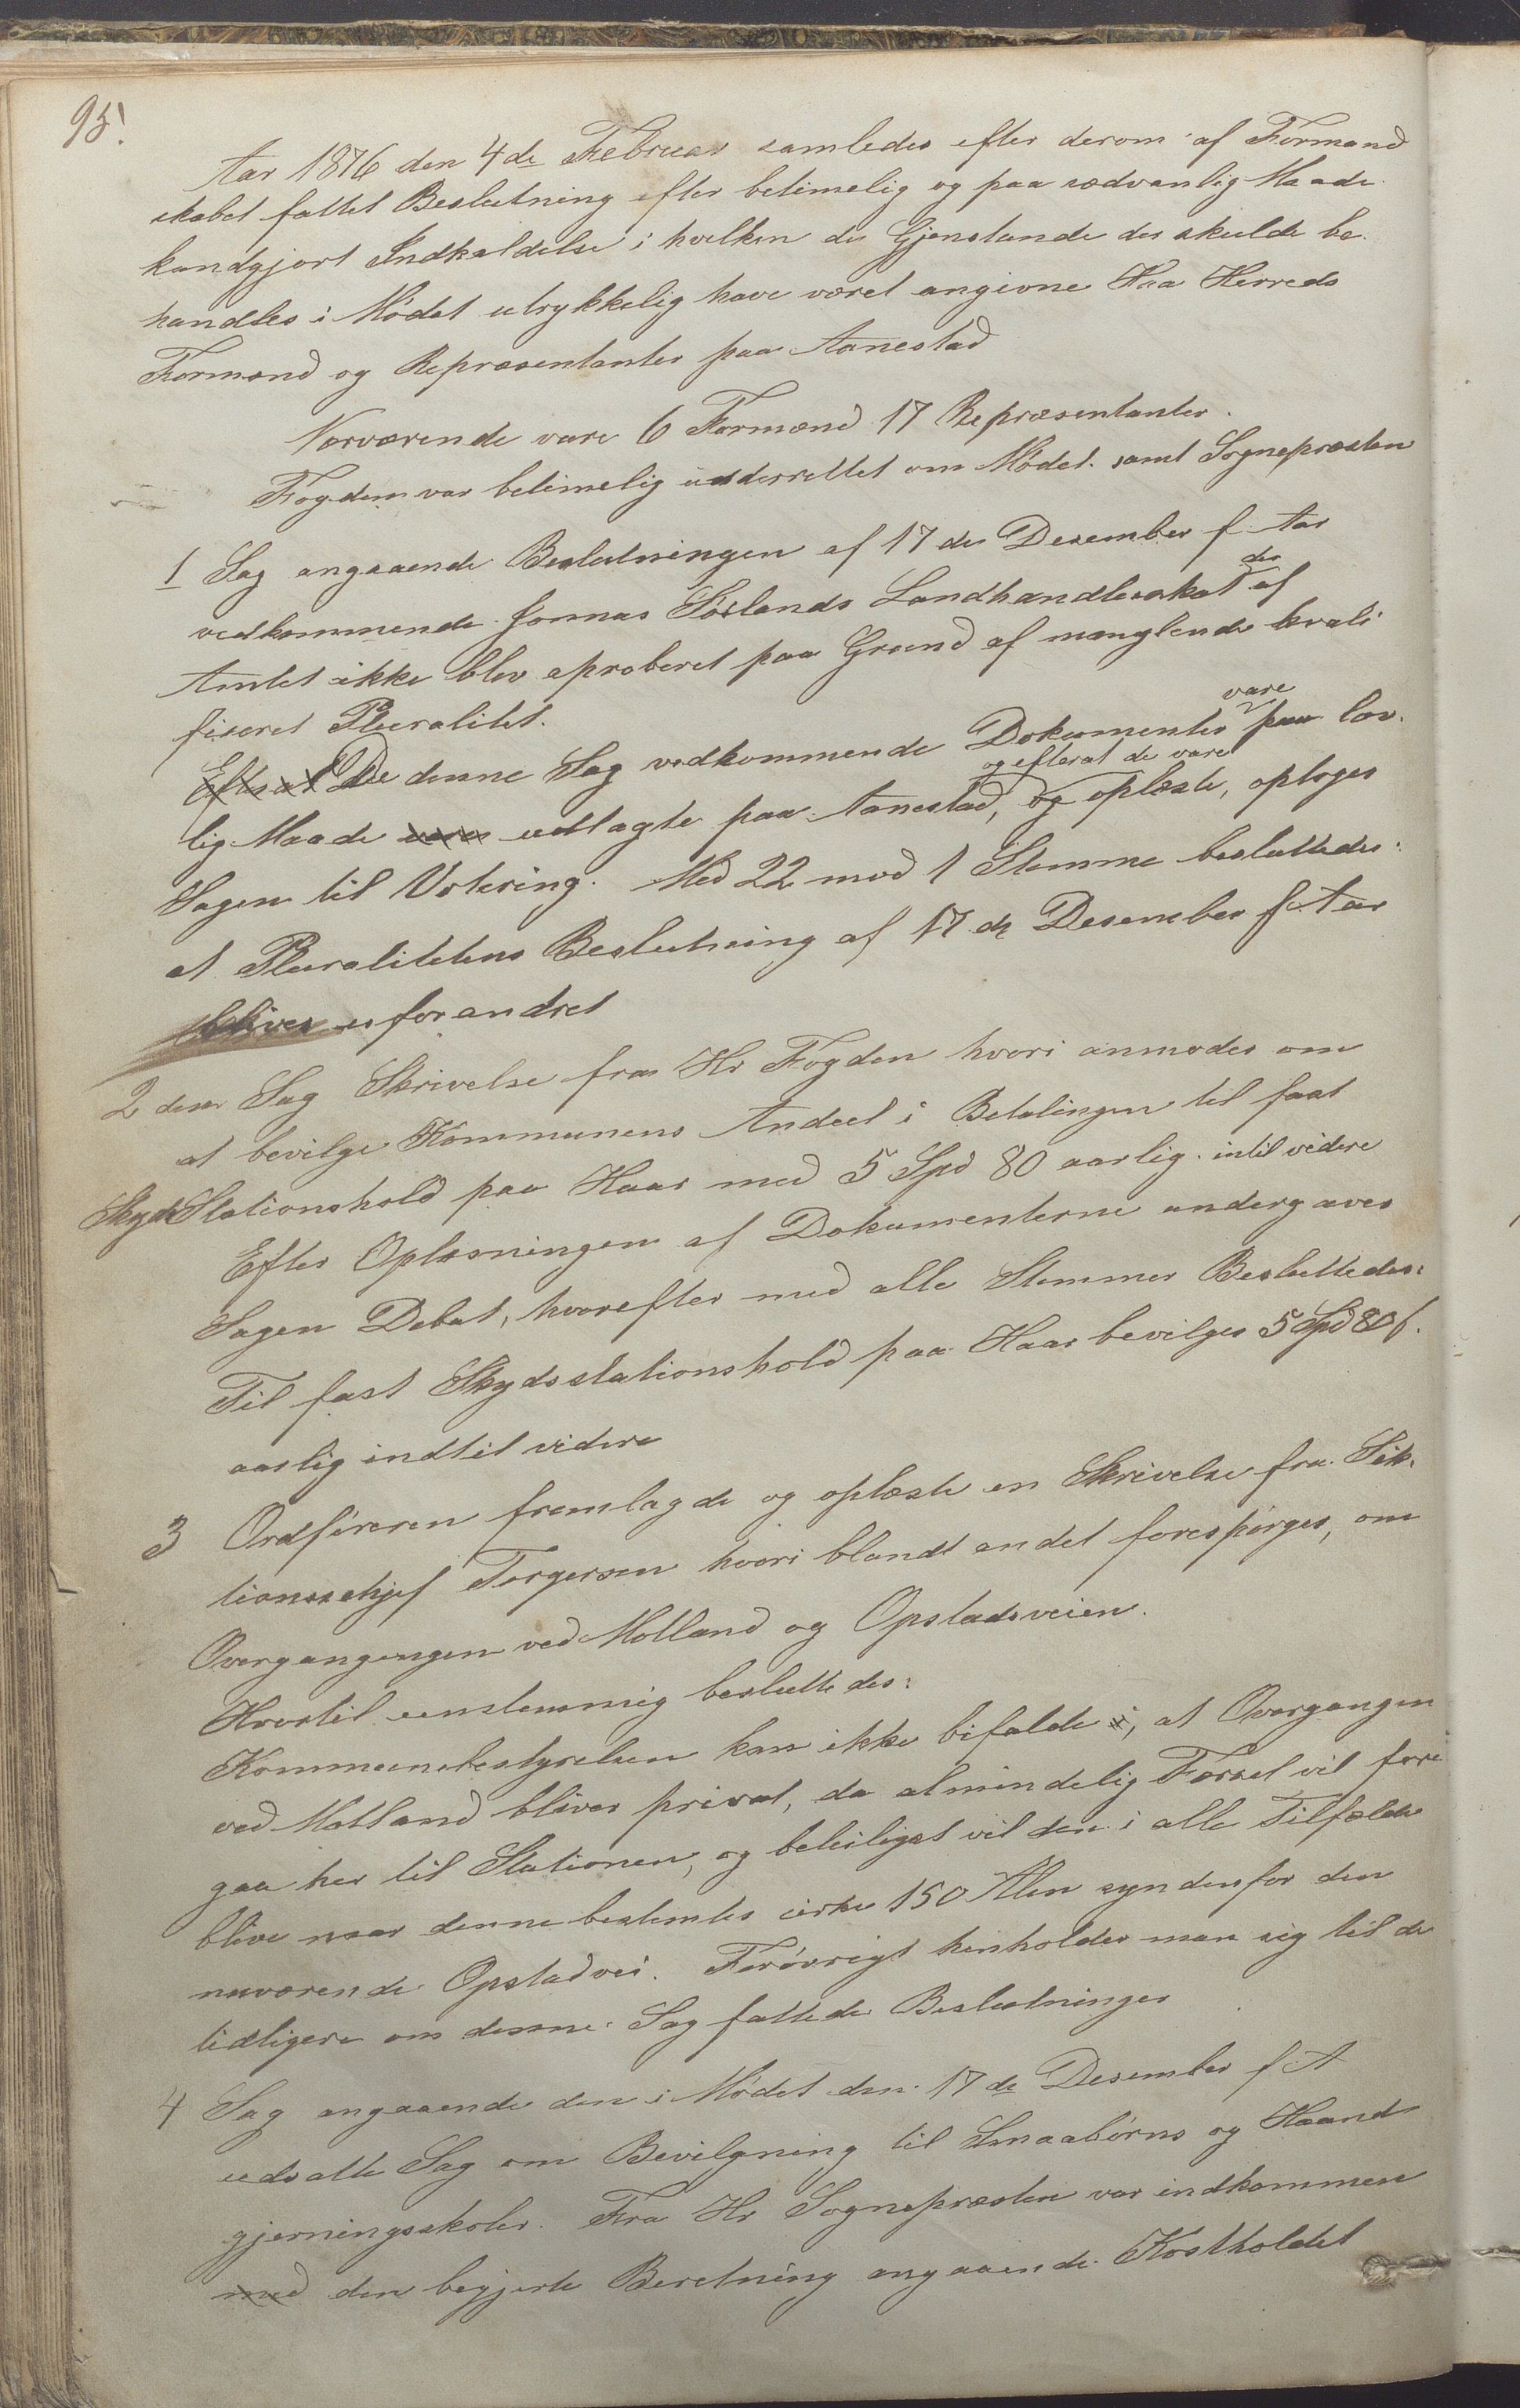 95.
Aar 1876 den 4de Februar samledes efter derom af Formand
skabet fattet Beslutning efter betimelig og paa sædvanlig Maade
kundgjort Indkaldelse i hvilken de Gjenstande der skulde be-
handles i Mødet utrykkelig have været angivne Haa Herreds
Formænd og Repræsentanter paa Aanestad
Nærværende vare 6 Formænd 17 Repræsentanter.
Fogden var betimelig underrettet om Mødet samt Sognepræsten
1 Sag angaaende Beslutningen af 17de Desember f. Aar
vedkommende Jonnas Lands Landhandlerskat der af
Amtet ikke blev aproberet paa Grund af manglende kvali
fiseret Pluralitet.
Efter at De denne Sag vedkommende Dokumenter vare paa lov-
lig Maade vare udlagte paa Aanestad, og efterat de vare og oplæste, optoges
Sagen til Votering. Med 22 mod 1 Stemme besluttedes:
at Pluralitetens Beslutning af 17de Desember f. Aar
bliver uforandret
2den Sag Skrivelse fra Hr Fogden hvori anmodes om
at bevilge Kommunens Andeel i Betalingen til fast
Skyds Stationshold paa Haar med 5 Spd 80 aarlig intil videre
Efter Oplæsningen af Dokumenterne undergaves
Sagen Debat, hvorefter med alle Stemmer Besluttedes:
Til fast Skydsstationshold paa Haar bevilges 5 Spd 80 f.
aarlig indtil videre
3 Ordføreren fremlagde og oplæste en Skrivelse fra Sek-
tionschjef Torgersen hvori blandt andet forespørges, om
Overgangengen ved Motland og Opstadsveien.
Hvortil eenstemmig besluttedes:
Kommunebestyrelsen kan ikke bifalde i, at Overgangen
ved Motland bliver privat, da almindelig Færsel vil fore
gaa her til Stationen, og beleiligst vil den i alle Tilfælde
blive naar denne bestemtes cirka 150 Alen syndenfor den
nuværende Opstadvei. Forøvrigt henholder man sig til de
tidligere om denne Sag fattede Beslutninger
4 Sag angaaende den i Mødet den 17de Desember f. A
udsatte Sag om Bevilgning til Smaabørns og Haand
gjerningsskoler. Fra Hr Sognepræsten var indkommen
med den begjærte Beretning angaaende Kostholdet